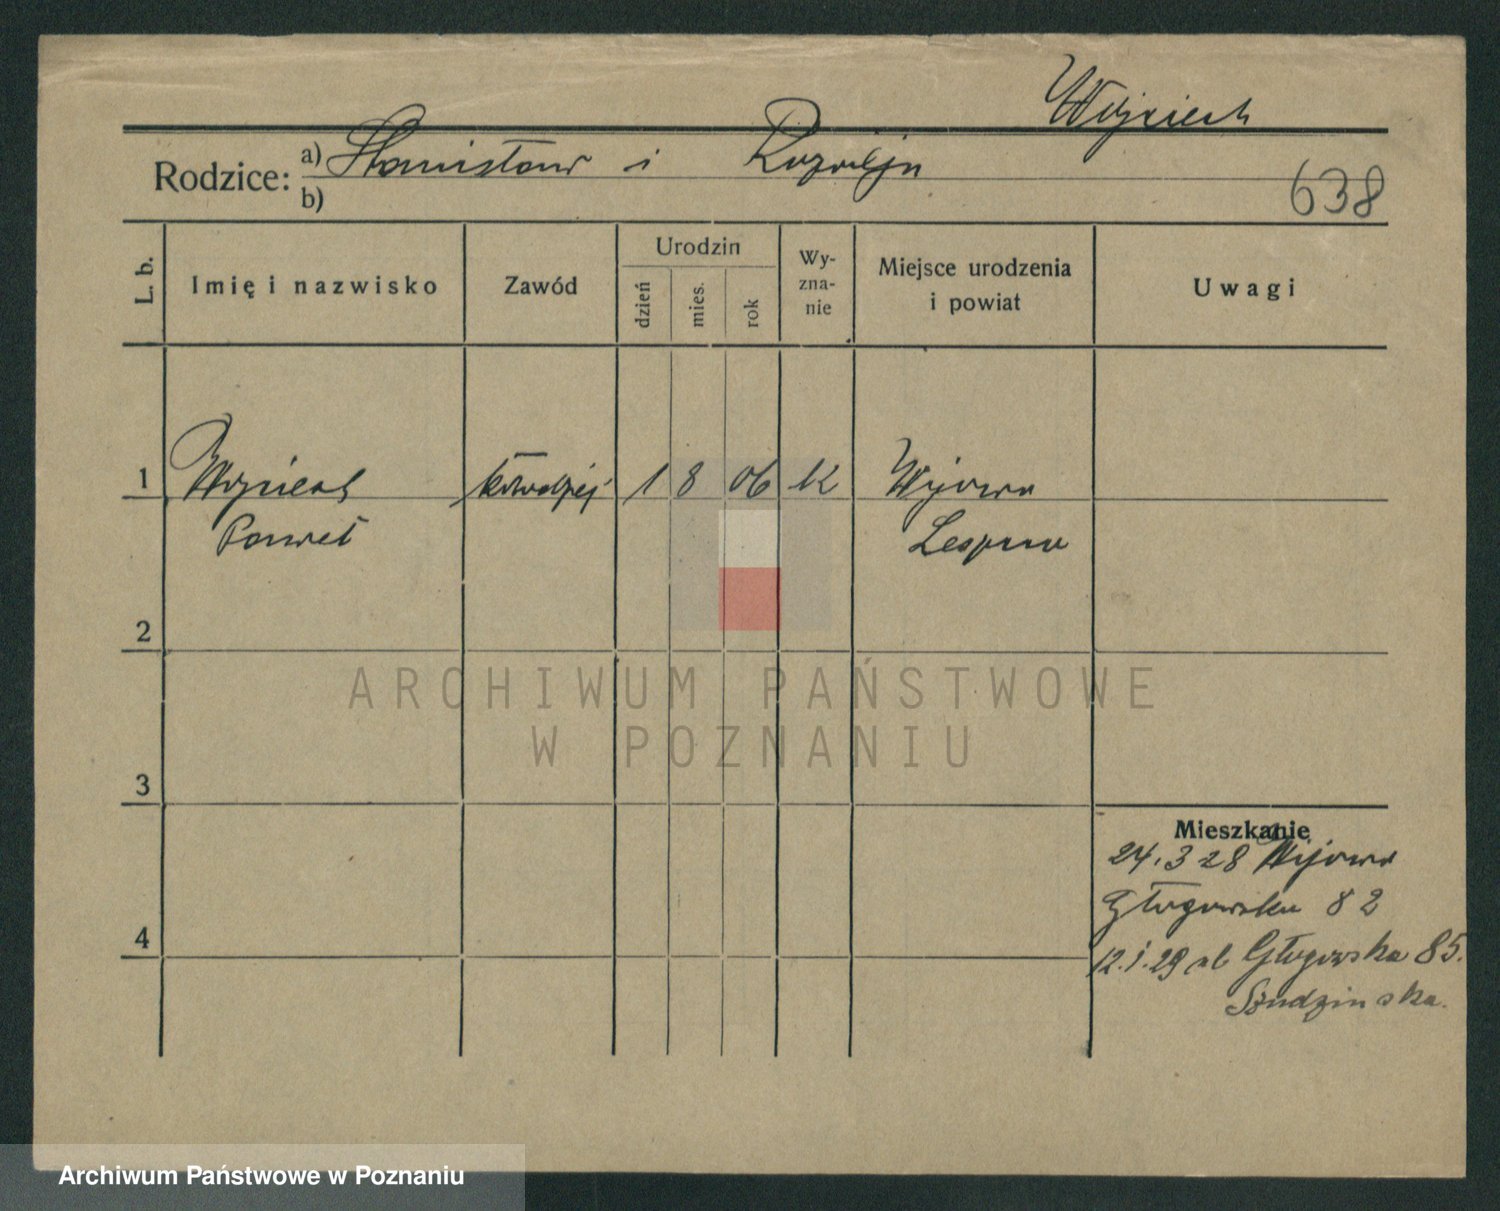 Wojciech
Rodzice: a) Stanisław i Rozalja
b)
638
L. b.
Imię i nazwisko
Zawód
Urodzin
dzień
mies.
rok
Wy-
zna-
nie
Miejsce urodzenia
i powiat
Uwagi
1 Wojciech kołodziej 1 8 06 k
Paweł
2
3
4
Mieszkanie
24.3 28
Głogowska 82
12.1.29 ab Głogowska 85.
ARCHIWUM PAŃSTWOWE
W POZNANIU
Archiwum Państwowe w Poznaniu